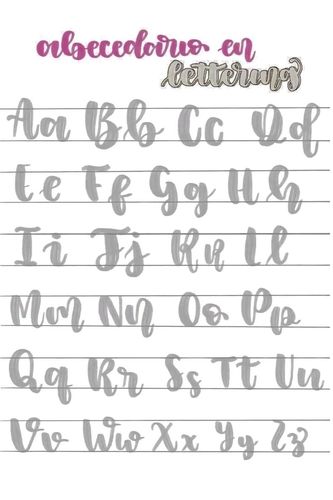 abecedario en
lettering
Aa Bb Cc Dd
Ee Ff Gg Hh
Ii Jj Kk Ll
Mm Nn Oo Pp
Qq Rr Ss Tt Uu
Vv Ww Xx Yy Zz